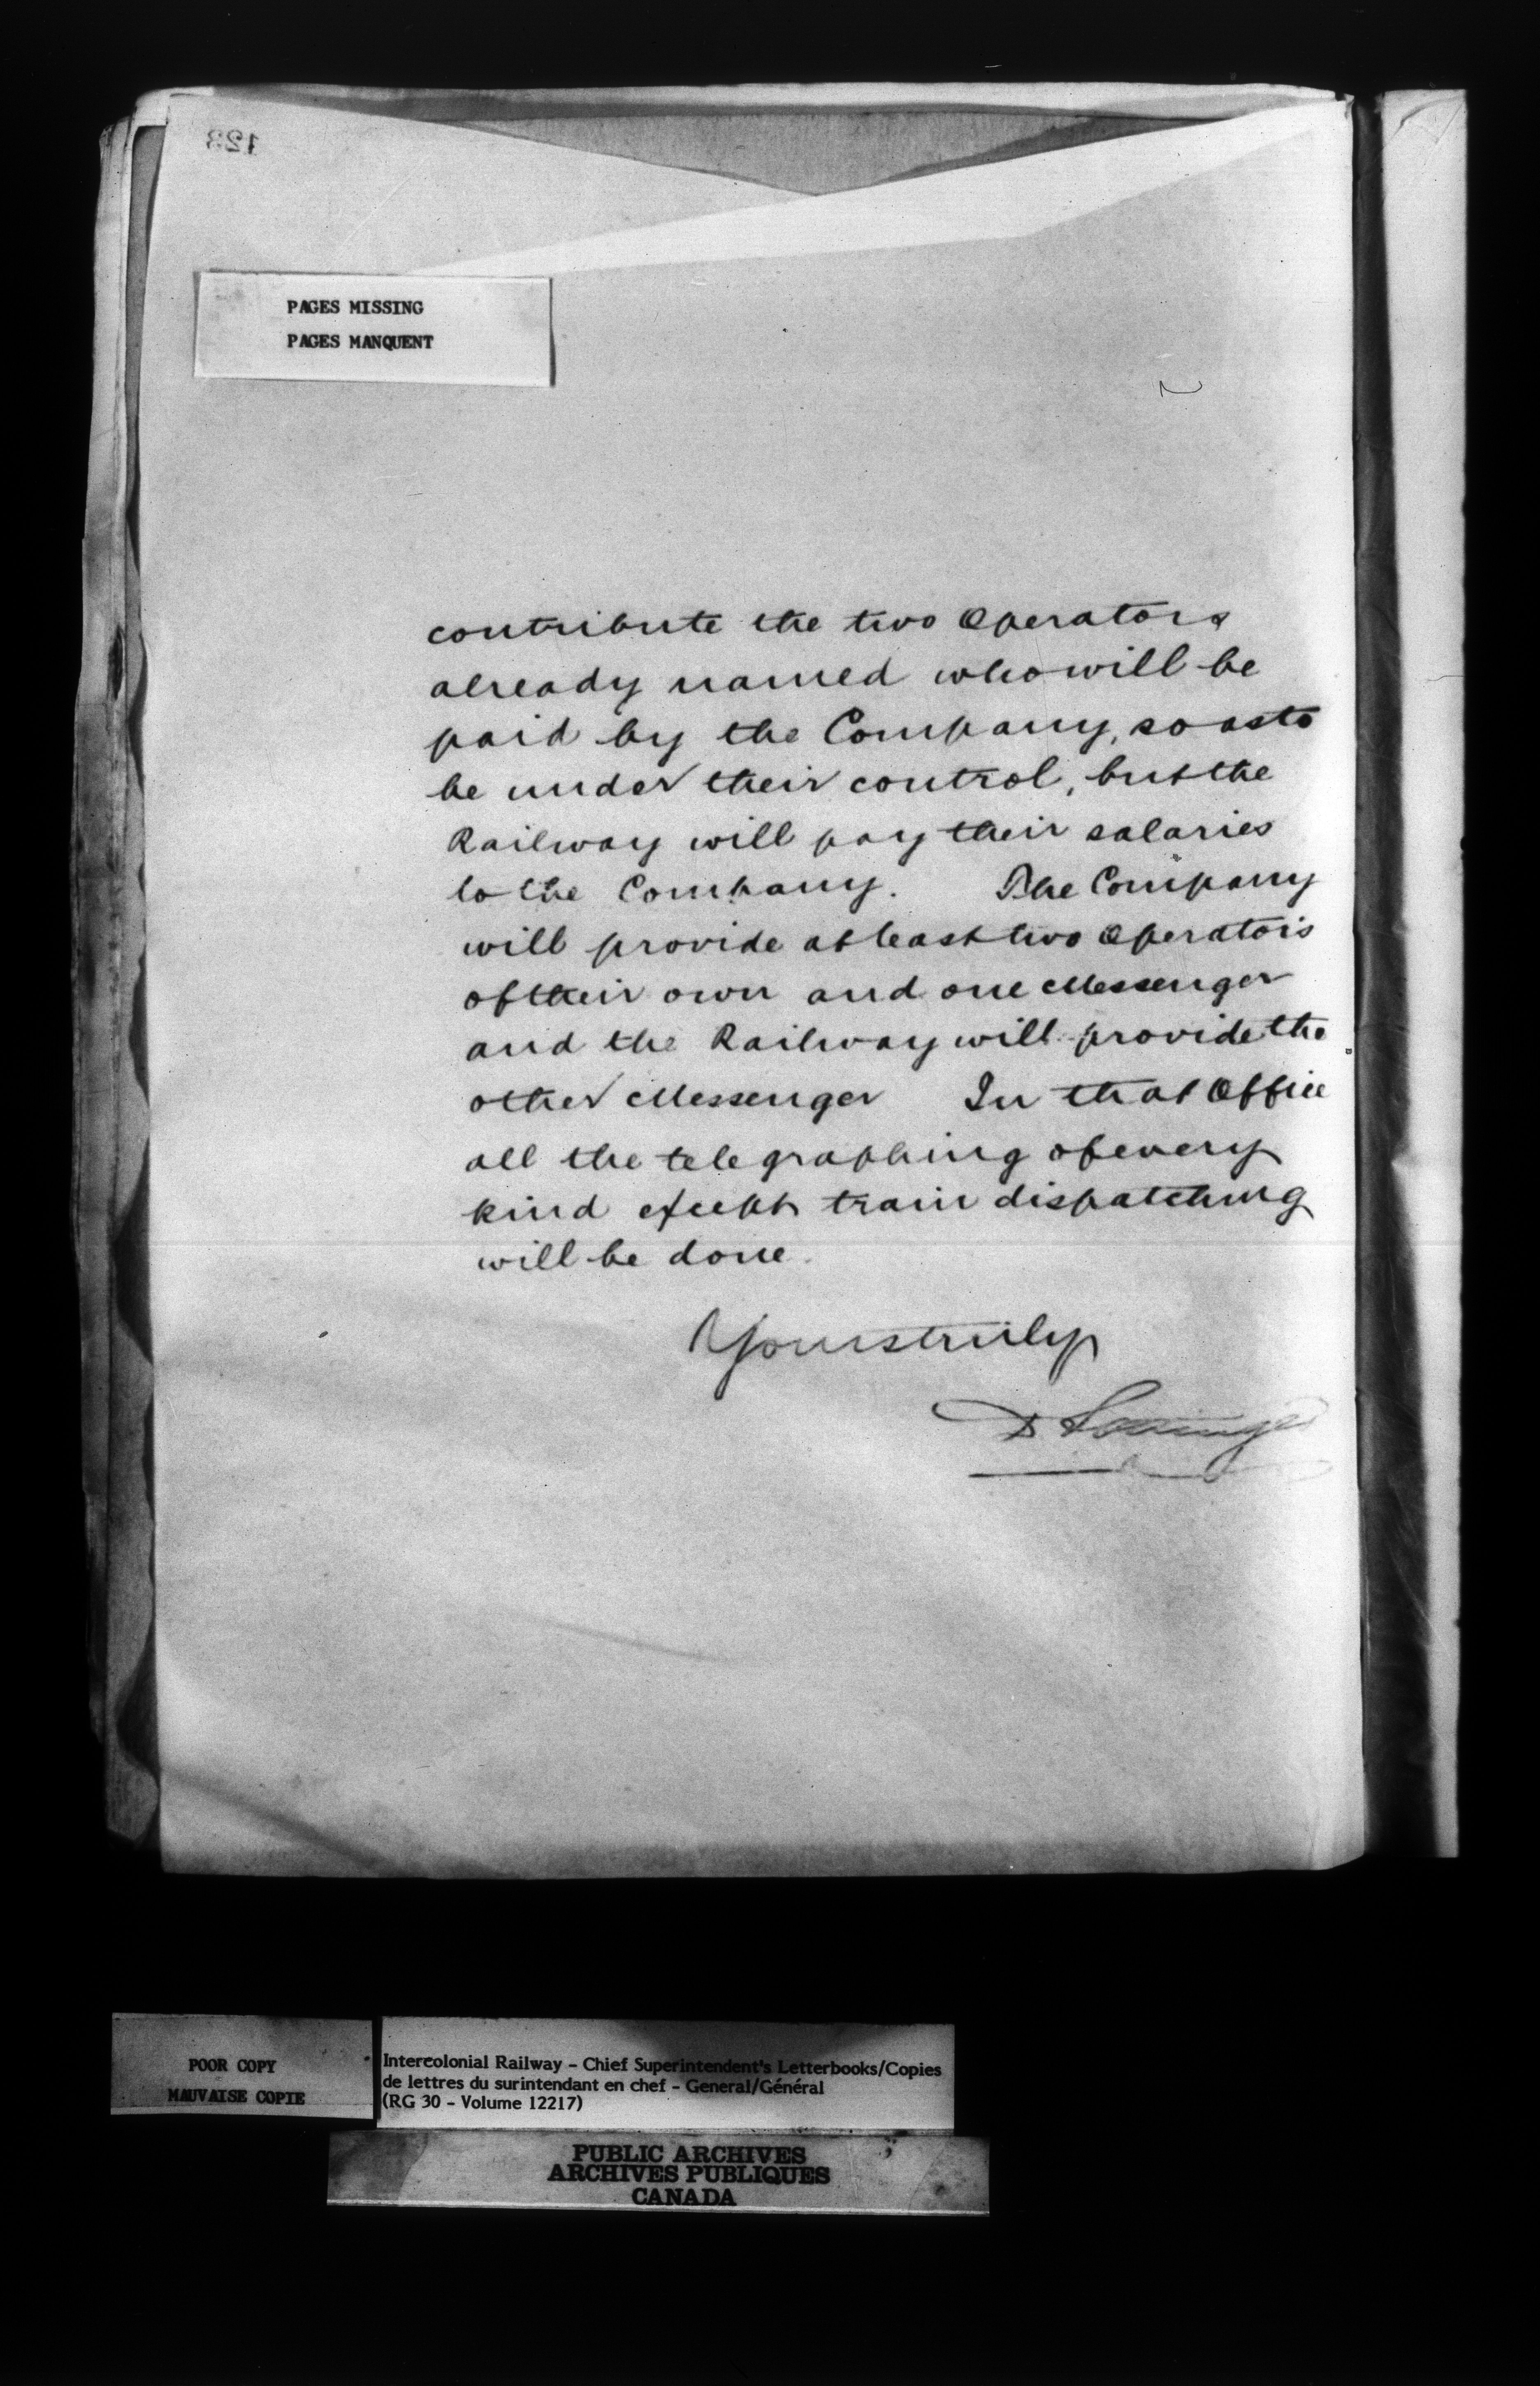 123
PAGES MISSING
PAGES MANQUENT
contribute the two Operators
already named who will be
paid by the Company, so as to
be under their control, but the
Railway will pay their salaries
to the Company. The Company
will provide at least two Operators
of their own and one Messenger
and the Railway will provide the
other Messenger In that Office
all the telegraphing of every
kind except train dispatching
will be done.
Yours truly
D
POOR COPY
MAUVAISE COPIE
Intercolonial Railway - Chief Superintendent's Letterbooks/Copies
de lettres du surintendant en chef - General/Général
(RG 30 - Volume 12217)
PUBLIC ARCHIVES
ARCHIVES PUBLIQUES
CANADA